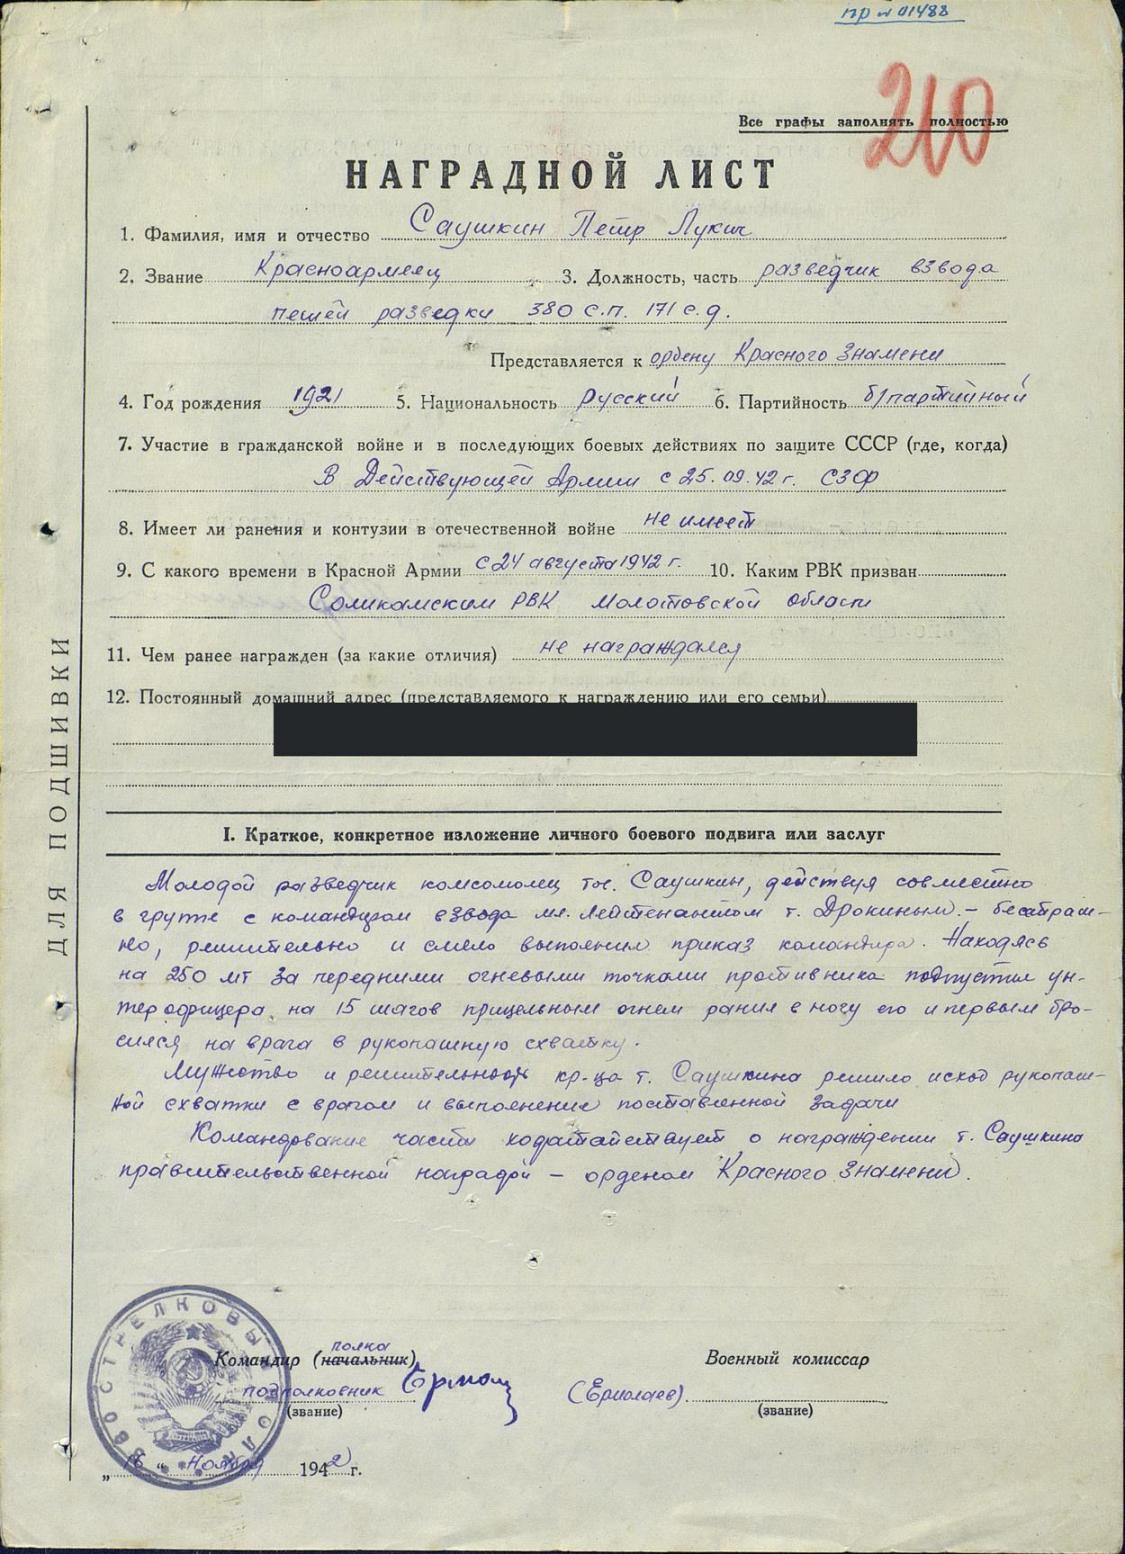 пр № 01488
210
Все графы заполнять полностью
НАГРАДНОЙ ЛИСТ
1. Фамилия, имя и отчество Саушкин Петр Лукич
2. Звание Красноармеец 3. Должность, часть разведчик взвода
пешей разведки 380 с.п. 171 с.д.
Представляется к ордену Красного Знамени
4. Год рождения 1921 5. Национальность Русский 6. Партийность б/партийный
7. Участие в гражданской войне и в последующих боевых действиях по защите СССР (где, когда)
В Действующей Армии с 25.09.42 г. СЗФ
8. Имеет ли ранения и контузии в отечественной войне не имеет
9. С какого времени в Красной Армии с 24 августа 1942 г. 10. Каким РВК призван
Соликамским РВК Молотовской области
11. Чем ранее награжден (за какие отличия) не награждался
12. Постоянный домашний адрес (представляемого к награждению или его семьи)
I. Краткое, конкретное изложение личного боевого подвига или заслуг
Молодой разведчик комсомолец тов. Саушкин, действуя совместно
в группе с командиром взвода мл. Лейтенантом т. Дрокиным. – бесстраш-
но, решительно и смело выполнил приказ командира. Находясь
на 250 мт за передними огневыми точками противника подпустил ун-
терофицера на 15 шагов прицельным огнем ранил в ногу его и первым бро-
сился на врага в рукопашную схватку.
Мужество и решительность кр-ца т. Саушкина решило исход рукопаш-
ной схватки с врагом и выполнение поставленной задачи
Командование части ходатайствует о награждении т. Саушкина
правительственной наградой – орденом Красного Знамени.
полка
Командир (начальник) Военный комиссар
подполковник (Ермолаев)
(звание) (звание)
„16“ Ноября 1942 г.
ДЛЯ ПОДШИВКИ